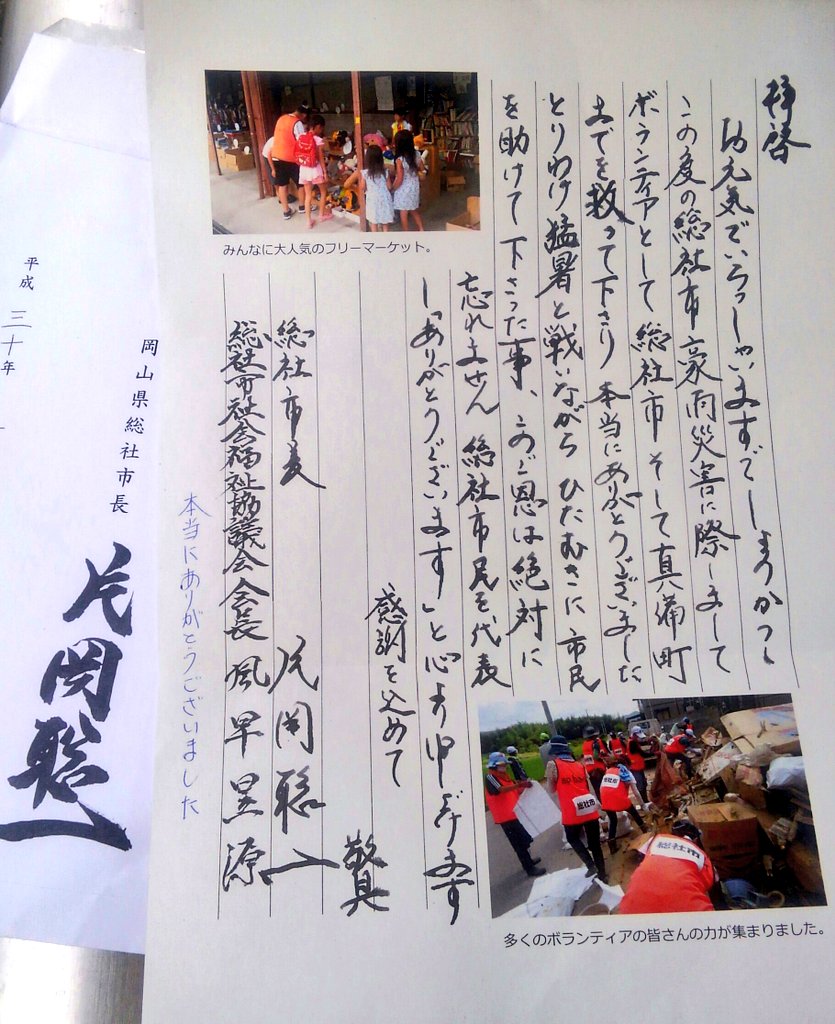 拝啓
お元気でいらっしゃいますでしょうかっ
この度の総社市豪雨災害に際しまして
ボランティアとして総社市そして真備町
までを救って下さり本当にありがとうございました
とりわけ猛暑と戦いながらひたむきに市民
を助けて下さった事、このご恩は絶対に
忘れません 総社市民を代表
し「ありがとうございます」と心より申し上げます
感謝を込めて
敬具
総社市長 片岡聡一
総社市社会福祉協議会会長 風早昱源
本当にありがとうございました
みんなに大人気のフリーマーケット。
総社市
総社市
多くのボランティアの皆さんの力が集まりました。
岡山県総社市長
片岡聡一
平成三十年